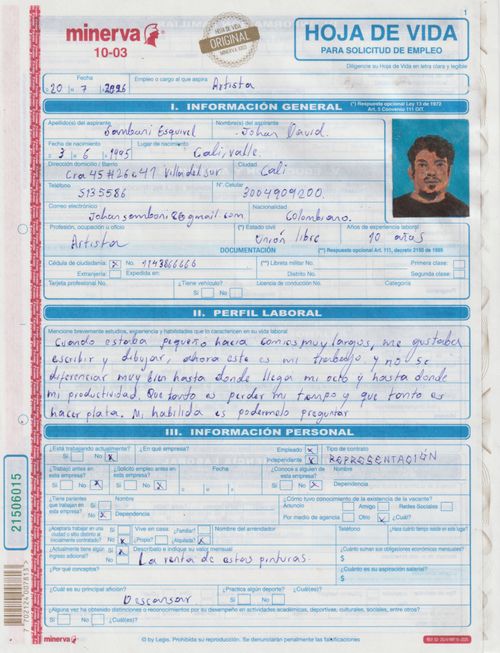 1
minerva
10-03
HOJA DE VIDA
ORIGINAL
MINERVA 1003
HOJA DE VIDA
PARA SOLICITUD DE EMPLEO
Diligencie su Hoja de Vida en letra clara y legible
Fecha
20 7 2026
Empleo o cargo al que aspira
Artista
I. INFORMACIÓN GENERAL
(*) Respuesta opcional Ley 13 de 1972
Art. 5 Convenio 111 OIT.
Apellido(s) del aspirante
Samboni Esquivel
Nombre(s) del aspirante
Johan David.
Fecha de nacimiento
3 6 1995
Lugar de nacimiento
Cali, valle.
Dirección domicilio / Barrio
Cra 45 # 26c47 Villa del sur
Ciudad
Cali
Teléfono
5135586
N°. Celular
3004909200.
Correo electrónico
Nacionalidad
Colombiano.
Profesión, ocupación u oficio
Artista
(*) Estado civil
Unión libre
Años de experiencia laboral
10 años
DOCUMENTACIÓN
(**) Respuesta opcional Art. 111, decreto 2150 de 1995
Cédula de ciudadanía: X No. 1143866666
(**) Libreta militar No.
Primera clase:
Extranjería: Expedida en:
Distrito No.
Segunda clase:
Tarjeta profesional No.
¿Tiene vehículo?
Si No
Licencia de conducción No.
Categoría
II. PERFIL LABORAL
Mencione brevemente estudios, experiencia y habilidades que lo caractericen en su vida laboral
Cuando estaba pequeño hacia comics muy largos, me gustaba
escribir y dibujar, ahora este es mi trabajo y no se
diferenciar muy bien hasta donde llega mi ocio y hasta donde
mi productividad. Que tanto es perder mi tiempo y que tanto es
hacer plata. Mi habilida es podermelo preguntar
III. INFORMACIÓN PERSONAL
¿Está trabajando actualmente?
Si No X
¿En qué empresa?
Empleado X
Independiente X
Tipo de contrato
REPRESENTACIÓN
¿Trabajó antes en esta empresa?
Si No X
¿Solicitó empleo antes en esta empresa?
Si No X
Fecha
¿Conoce a alguien de esta empresa?
Si No X
Nombre
Dependencia
¿Tiene parientes que trabajan en esta empresa?
Si
No X
Nombre
Dependencia
¿Cómo tuvo conocimiento de la existencia de la vacante?
Anuncio Amigo Redes Sociales
Por medio de agencia Otro X ¿Cuál?
¿Aceptaría trabajar en una ciudad o sitio distinto al inicialmente contratado?
Si
No X
Vive en casa: ¿Familiar?
¿Propia? ¿Alquilada? X
Nombre del arrendador
Teléfono
¿Hace cuánto tiempo reside en este lugar?
¿Actualmente tiene algún ingreso adicional?
Si X
No
Descríbalo e indique su valor mensual
La renta de estas pinturas
¿Cuánto suman sus obligaciones económicas mensuales?
$
¿Por qué conceptos?
¿Cuánto es su aspiración salarial?
$
¿Cuál es su principal afición?
Descansar
¿Practica algún deporte?
Si No
¿Cuál(es)?
¿Alguna vez ha obtenido distinciones o reconocimientos por su desempeño en actividades académicas, deportivas, culturales, sociales, entre otros?
Si
No
¿Cuál(es)?
minerva
© by Legis. Prohibida su reproducción. Se denunciarán penalmente las falsificaciones
21506015